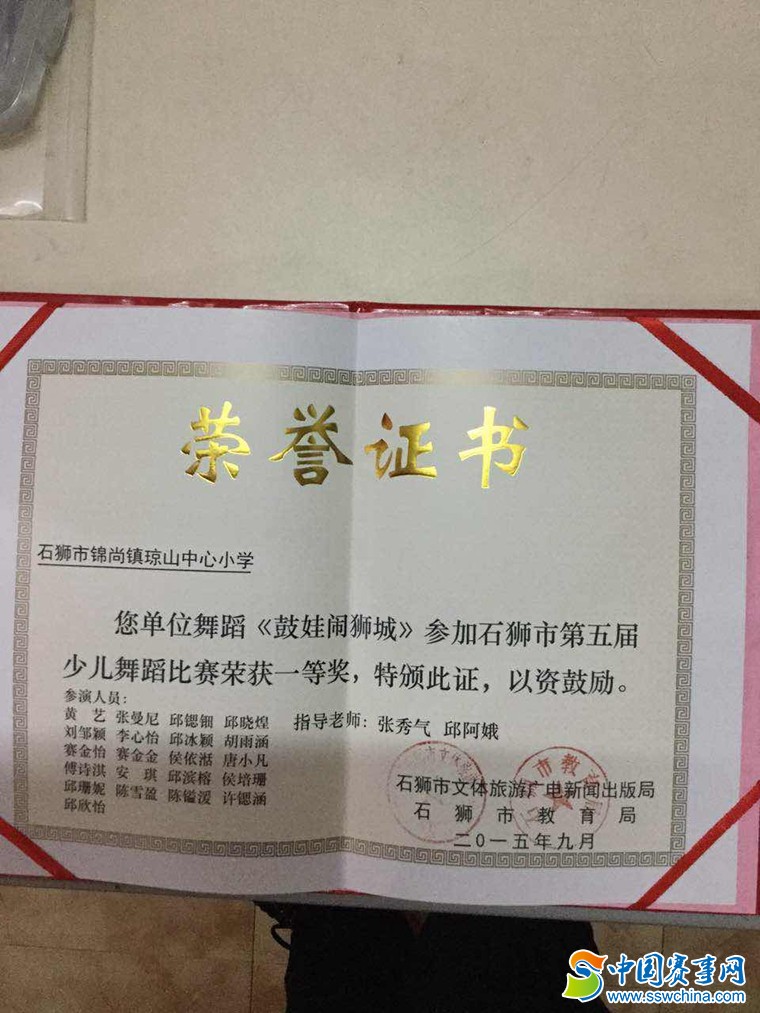 荣誉证书
石狮市锦尚镇琼山中心小学
您单位舞蹈《鼓娃闹狮城》参加石狮市第五届
少儿舞蹈比赛荣获一等奖，特颁此证，以资鼓励。
参演人员：
黄 艺 张曼尼 邱锶锢 邱晓煌
刘邹颖 李心怡 邱冰颖 胡雨涵
赛金怡 赛金金 侯依湉 唐小凡
傅诗淇 安 琪 邱滨榕 侯培珊
邱珊妮 陈雪盈 陈镒湲 许锶涵
邱欣怡
指导老师：张秀气 邱阿娥
石狮市文体旅游广电新闻出版局
石狮市教育局
二〇一五年九月
中国赛事网
www.sswchina.com